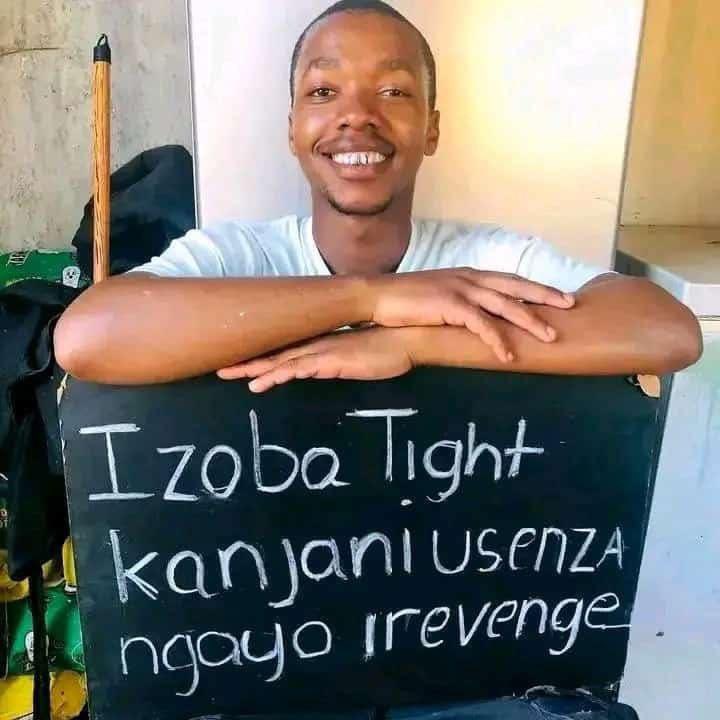 Izoba Tight
kanjani usenza
ngayo irevenge